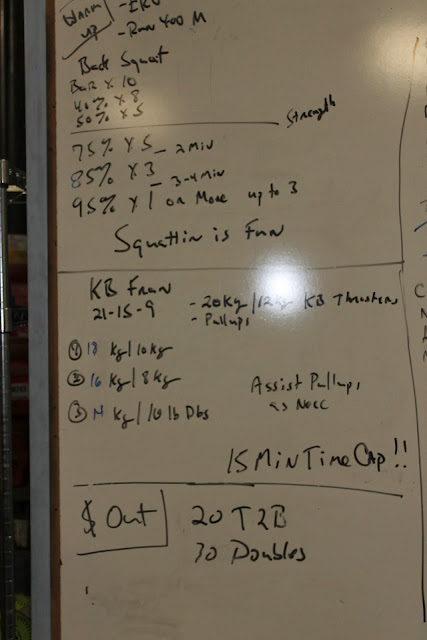 Warm up
- ERG
- Run 400 M
Back Squat
Bar x 10
40% x 8
50% x 5
Strength
75% x 5 - 2 Min
85% x 3 - 3-4 Min
95% x 1 or More up to 3
Squattin is Fun
KB Fran
21-15-9
- 20kg/12kg KB Thrusters
- Pullups
④ 18 kg/10kg
② 16 kg/8kg
③ 14 kg/10 lb Dbs
Assist Pullups
as Necc
15 Min Time Cap!!
$ Out
20 T2B
30 Doubles